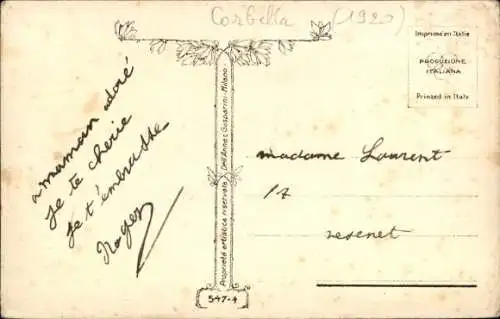 Corbella (1920)
Imprimé en Italie
PRODUZIONE
ITALIANA
Printed in Italy
a mamam adoré
Je te cherie
Je t'embrasse
Roger
Proprietà artistica riservata Dell'Anna e Gasparini - Milano
madame Laurent
17
resenet
547-4